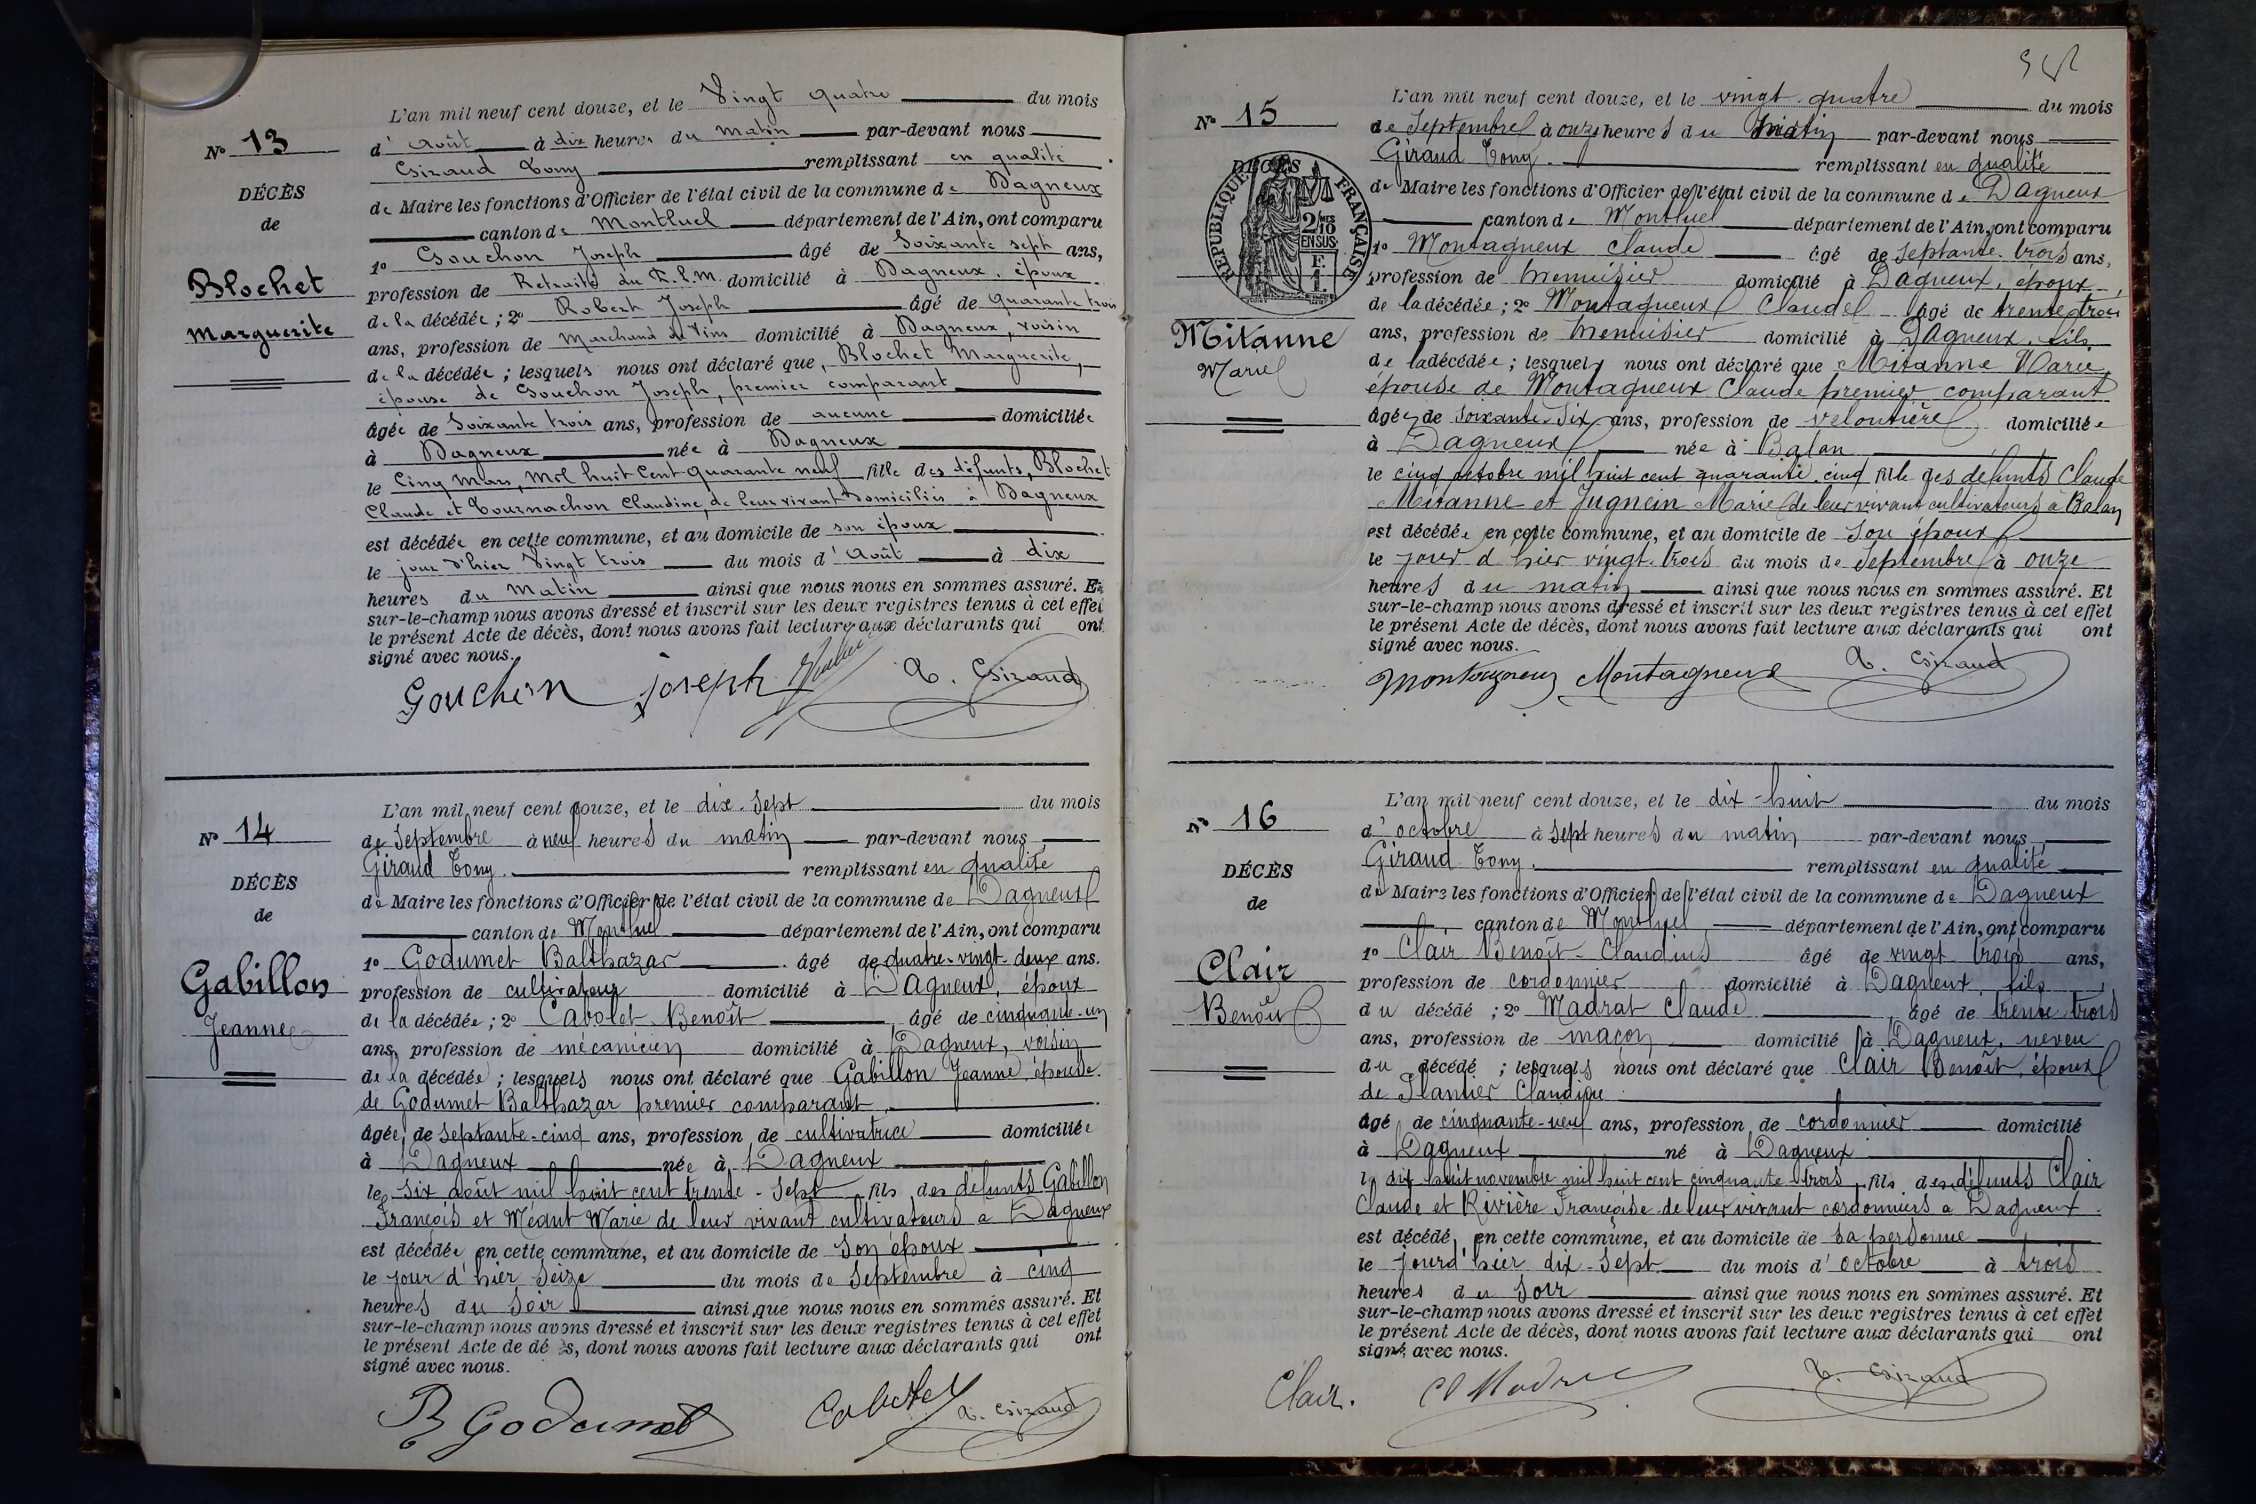 N° 13
DÉCÈS
de
Blochet
Marguerite
L'an mil neuf cent douze, et le Vingt quatre du mois
d'Août à dix heures du matin par-devant nous
Giraud Tony remplissant en qualité
de Maire les fonctions d'Officier de l'état civil de la commune de Dagneux
canton de Montluel département de l'Ain, ont comparu
1° Gouchon Joseph âgé de Soixante sept ans,
profession de Retraité du P.L.M. domicilié à Dagneux, époux
de la décédée ; 2° Robert Joseph âgé de quarante trois
ans, profession de Marchand de Vins domicilié à Dagneux, voisin
de la décédée ; lesquels nous ont déclaré que, Blochet Marguerite,
épouse de Gouchon Joseph, premier comparant
âgée de Soixante trois ans, profession de aucune domiciliée
à Dagneux née à Dagneux
le Cinq Mars, Mil huit Cent quarante neuf fille des défunts, Blochet
Claude et Tournachon Claudine, de leur vivant domiciliés à Dagneux
est décédée en cette commune, et au domicile de son époux
le jour d'hier Vingt trois du mois d'Août à dix
heures du Matin ainsi que nous nous en sommes assuré. Et
sur-le-champ nous avons dressé et inscrit sur les deux registres tenus à cet effet
le présent Acte de décès, dont nous avons fait lecture aux déclarants qui ont
signé avec nous.
Gouchon joseph T. Giraud
N° 14
DÉCÈS
de
Gabillon
Jeanne
L'an mil neuf cent douze, et le dix-sept du mois
de Septembre à neuf heures du matin par-devant nous
Giraud Tony. remplissant en qualité
de Maire les fonctions d'Officier de l'état civil de la commune de Dagneux
canton de Montluel département de l'Ain, ont comparu
1° Godumet Balthazar âgé de quatre-vingt deux ans.
profession de cultivateur domicilié à Dagneux, époux
de la décédée ; 2° Cabolet Benoît âgé de cinquante-un
ans, profession de mécanicien domicilié à Dagneux, voisin
de la décédée ; lesquels nous ont déclaré que Gabillon Jeanne, épouse
de Godumet Balthazar premier comparant
âgée de Septante-cinq ans, profession de cultivatrice domiciliée
à Dagneux née à Dagneux
le six août mil huit cent trente-sept fils des défunts Gabillon
François et Marie de leur vivant cultivateurs à Dagneux
est décédée en cette commune, et au domicile de son époux
le jour d'hier Seize du mois de Septembre à cinq
heures du Soir ainsi que nous nous en sommes assuré. Et
sur-le-champ nous avons dressé et inscrit sur les deux registres tenus à cet effet
le présent Acte de dé s, dont nous avons fait lecture aux déclarants qui ont
signé avec nous.
B Godumet Cabolet T. Giraud
N° 15
DÉCÈS
de
RÉPUBLIQUE FRANÇAISE
2/10 MES
EN SUS
Mitanne
Marie
L'an mil neuf cent douze, et le vingt-quatre du mois
de Septembre à onze heures du matin par-devant nous
Giraud Tony. remplissant en qualité
de Maire les fonctions d'Officier de l'état civil de la commune de Dagneux
canton de Montluel département de l'Ain, ont comparu
1° Montagneux Claude âgé de septante-trois ans,
profession de menuisier domicilié à Dagneux, époux
de la décédée ; 2° Montagneux Claude âgé de trente-trois
ans, profession de menuisier domicilié à Dagneux, fils
de la décédée ; lesquels nous ont déclaré que Mitanne Marie,
épouse de Montagneux Claude premier comparant
âgée de soixante-six ans, profession de veloutière domiciliée
à Dagneux née à Balan
le cinq octobre mil huit cent quarante-cinq fille des défunts Claude
Mitanne et Marie de leur vivant cultivateurs à Balan
est décédée en cette commune, et au domicile de son époux
le jour d'hier vingt-trois du mois de Septembre à onze
heures du matin ainsi que nous nous en sommes assuré. Et
sur-le-champ nous avons dressé et inscrit sur les deux registres tenus à cet effet
le présent Acte de décès, dont nous avons fait lecture aux déclarants qui ont
signé avec nous.
Montagneux Montagneux T. Giraud
N° 16
DÉCÈS
de
Clair
Benoît
L'an mil neuf cent douze, et le dix-huit du mois
d'octobre à sept heures du matin par-devant nous
Giraud Tony. remplissant en qualité
de Maire les fonctions d'Officier de l'état civil de la commune de Dagneux
canton de Montluel département de l'Ain, ont comparu
1° Clair Benoît-Claudius âgé de vingt trois ans,
profession de cordonnier domicilié à Dagneux, fils
du décédé ; 2° Madrat Claude âgé de trente trois
ans, profession de maçon domicilié à Dagneux, neveu
du décédé ; lesquels nous ont déclaré que Clair Benoît, époux
de Plantier Claudine
âgé de cinquante-neuf ans, profession de cordonnier domicilié
à Dagneux né à Dagneux
le dix huit novembre mil huit cent cinquante-trois, fils des défunts Clair
Claude et Rivière Françoise de leur vivant cordonniers à Dagneux.
est décédé en cette commune, et au domicile de sa personne
le jourd'hier dix-sept du mois d'octobre à trois
heures du soir ainsi que nous nous en sommes assuré. Et
sur-le-champ nous avons dressé et inscrit sur les deux registres tenus à cet effet
le présent Acte de décès, dont nous avons fait lecture aux déclarants qui ont
signé avec nous.
Clair. T. Giraud